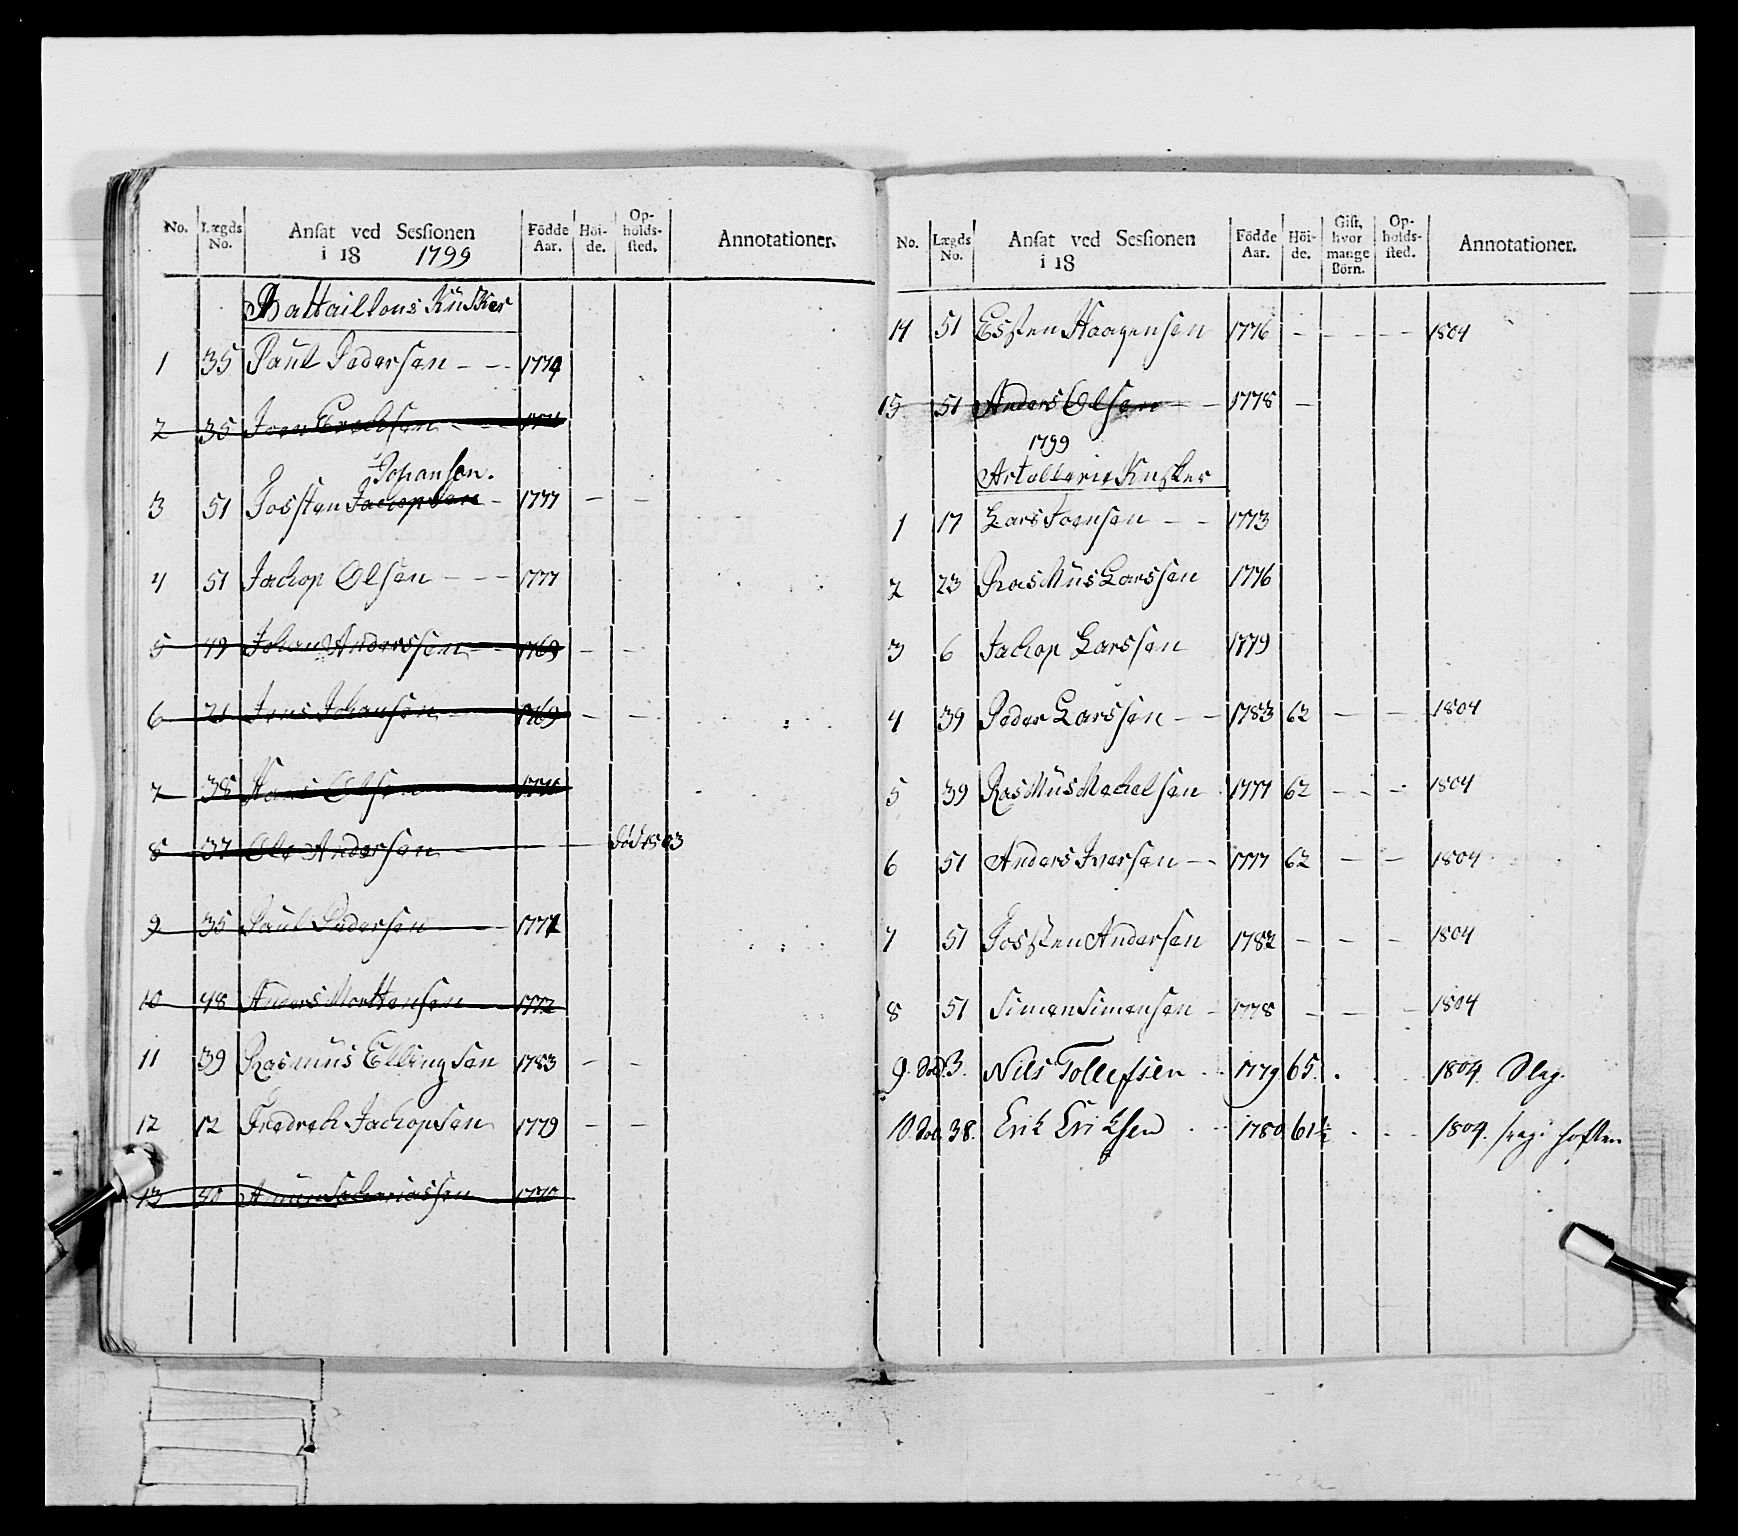 No. Lægds No. Ansat ved Sessionen i 18 1799 Födde Aar. Höi-de. Op-holds-sted. Annotationer.
Battaillons Kusker
1 35 Paul Pedersen - - - 1774
2 35 Joen
3 51 Josten Jachopsen - 1777 - -
Johansen.
4 51 Jachop Olsen - - - 1777
5 49 Johan Anderssen - - 1769 - -
6 21 Jens Johansen 1769 - -
7 38 Hans Olsen
8 37 Ole Andersen - - - död 1803
9 35 Paul Pedersen - 1774
10 48 Anders Morttensen - 1772
11 39 Rasmus Ellingsen 1783 - -
12 12 Fredrech Jachopsen 1779 - -
13 40 1770
No. Lægds No. Ansat ved Sessionen i 18 Födde Aar. Höi-de. Gift, hvor mange Börn. Op-holds-sted. Annotationer.
14 51 Essten Haagensen 1776 - - - - 1804
15 51 Anders Olsen - 1778 -
1799
Artollerie Kusker
1 17 Lars Joensen - - 1773
2 23 Rasmus Larssen 1776
3 6 Jachop Larssen 1779
4 39 Peder Larssen - - 1783 62 - - 1804
5 39 Rasmus Mechelsen 1777 62 - - - 1804
6 51 Anders Iversen - - 1777 62 - - 1804
7 51 Josten Andersen 1782 - - - 1804
8 51 Simen Simensen - 1778 - - - 1804
9. 3. Nils Tollefsen . . 1779 65. . . 1804.
10. 38. Erik Eriksen . . 1780 61½ . . . 1804.